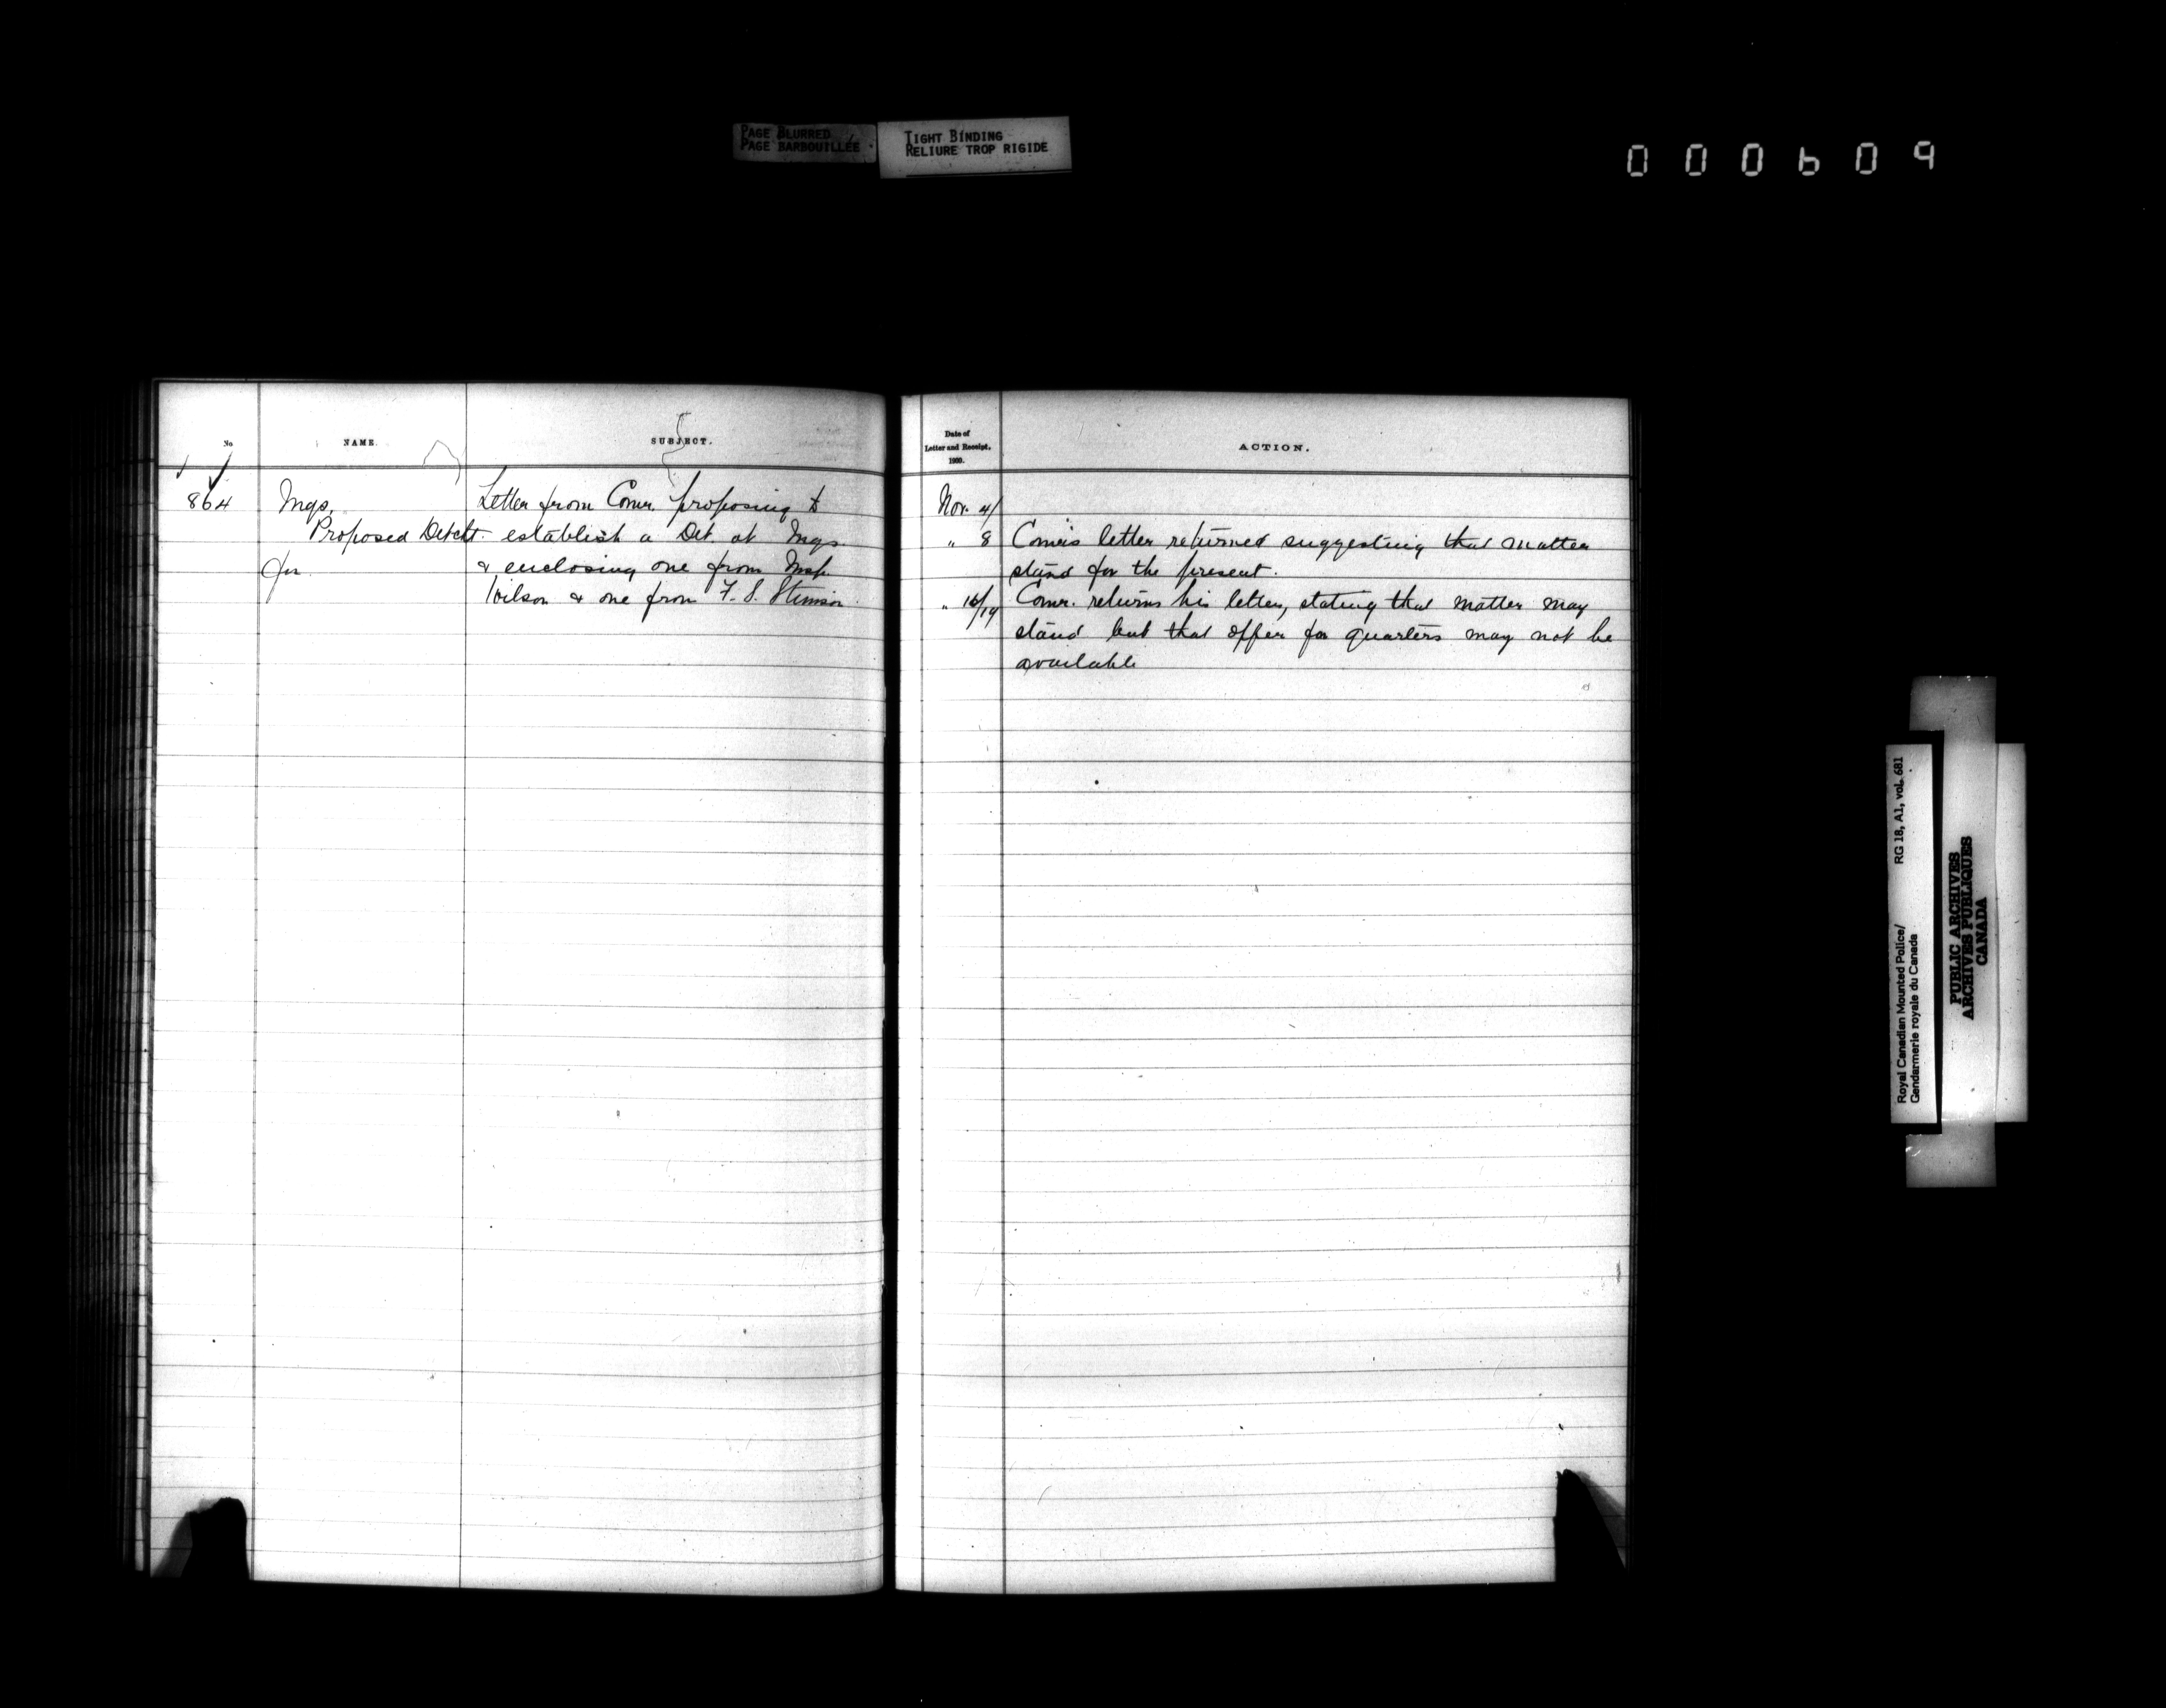 PAGE BLURRED
PAGE BARBOUILLÉE
TIGHT BINDING
RELIURE TROP RIGIDE
000609
No
NAME.
SUBJECT.
864
Ings,
Proposed Detcht.
for
Letter from Comr. proposing to
establish a Det. at Ings
& enclosing one from Insp.
Wilson & one from F. S. Stimson
Date of
Letter and Receipt,
1900.
ACTION.
Nov. 4/
" 8 Comr's letter returned suggesting that matter
stand for the present.
" 16/19 Comr. returns his letter, stating that matter may
stand but that offer for quarters may not be
available
Royal Canadian Mounted Police/
Gendarmerie royale du Canada
RG 18, A1, vol. 681
PUBLIC ARCHIVES
ARCHIVES PUBLIQUES
CANADA